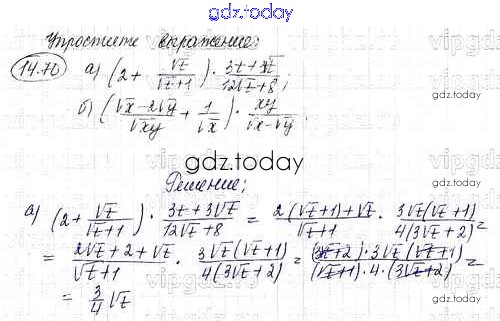 gdz.today
Упростите выражение:
14.70 а) (2 + √t/(√t+1)) · (3t+3√t)/(12√t+8);
б) ((√x-2√y)/√xy + 1/√x) · xy/(√x-√y).
gdz.today
Решение;
а) (2 + √t/(√t+1)) · (3t+3√t)/(12√t+8) = (2(√t+1)+√t)/(√t+1) · 3√t(√t+1)/(4(3√t+2)) =
= (2√t+2+√t)/(√t+1) · 3√t(√t+1)/(4(3√t+2)) = ((3√t+2)·3√t(√t+1))/((√t+1)·4·(3√t+2)) =
= 3/4 √t
gdz.today